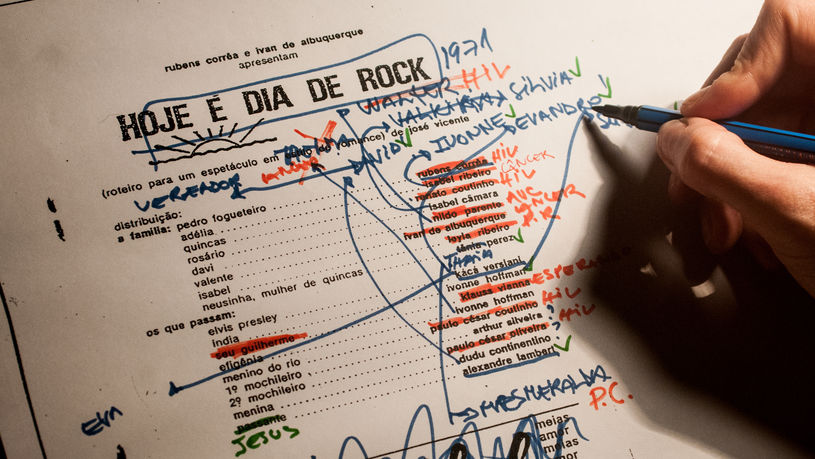 rubens corrêa e ivan de albuquerque
apresentam
1971
HOJE É DIA DE ROCK
HIV
SILVIA
de josé vicente
IVONNE EVANDRO
DAVID
(roteiro para um espetáculo em
VEREADOR
distribuição:
a família: pedro fogueteiro rubens corrêa HIV
adélia isabel ribeiro CÂNCER
quincas renato coutinho HIV
rosário isabel câmara
davi nildo parente AVC
valente ivan de albuquerque CÂNCER
isabel leyla ribeiro P.R.
neusinha, mulher de quincas tânia perez
THAIA
os que passam: kacá versiani
elvis presley ivonne hoffman
índia klauss vianna
seu guilherme ivonne hoffman
efigênia paulo césar coutinho HIV
menino do rio arthur silveira ?
1º mochileiro paulo césar oliveira HIV
2º mochileiro dudu continentino
menina alexandre lambert
passante
JESUS
P.C.
meias
amor
meias
amor